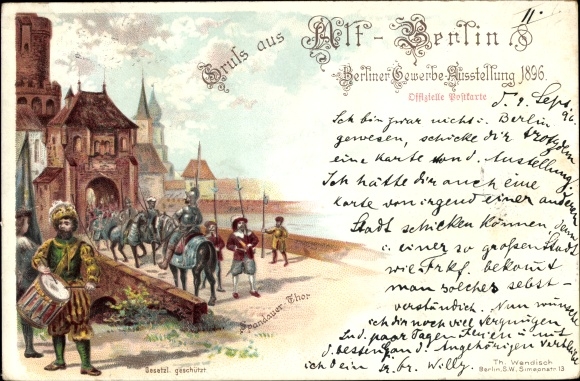 11.
Gruß aus Alt-Berlin
Berliner Gewerbe-Ausstellung 1896.
Offizielle Postkarte
d. 9. Sept. 96
Ich bin zwar nicht i. Berlin
gewesen, schicke dir trotzdem
eine Karte von d. Austellung
Ich hätte dir auch eine
Karte von irgend einer anderen
Stadt schicken können, denn
i. einer so großen Stadt
wie Frkf. bekomt
man solcher selbst-
verständich. Nun wünsche
ich dir noch viel Vergnügen
i. d. paar Tagen Ferien u. mit
d. besten an d. Angehörigen verbleibe
ich Dein Br. Willy.
Spandauer Thor
Gesetzl. geschützt
Th. Wendisch
Berlin, S.W. Simeonstr 13